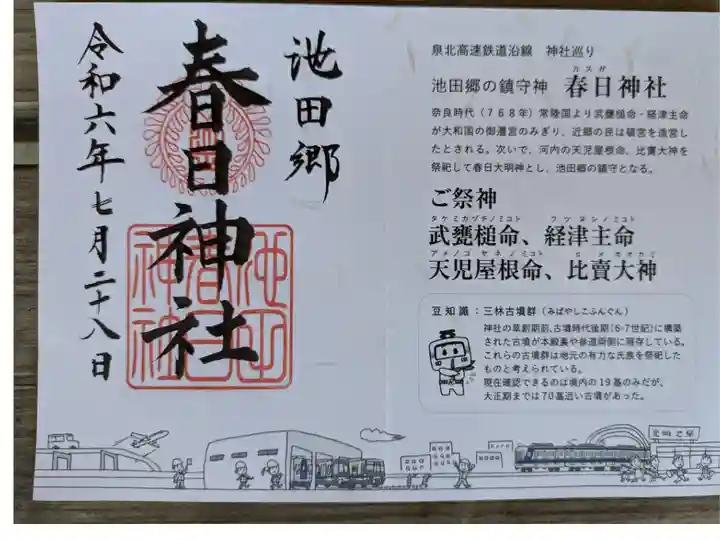 池田郷
春日神社
令和六年七月二十八日
池田
春日
神社
泉北高速鉄道沿線 神社巡り
カスガ
池田郷の鎮守神 春日神社
奈良時代(768年)常陸国より武甕槌命・経津主命
が大和国の御遷宮のみぎり、近郷の民は頓宮を造営し
たとされる。次いで、河内の天児屋根命、比賣大神を
祭祀して春日大明神とし、池田郷の鎮守となる。
ご祭神
タケミカヅチノミコト フツヌシノミコト
武甕槌命、経津主命
アメノコヤネノミコト ヒメオオカミ
天児屋根命、比賣大神
豆知識:三林古墳群(みばやしこふんぐん)
神社の草創期前、古墳時代後期(6-7世紀)に構築
された古墳が本殿裏や参道両側に現存している。
これらの古墳群は地元の有力な氏族を祭祀した
ものと考えられている。
現在確認できるのは境内の19基のみだが、
大正期までは70基近い古墳があった。